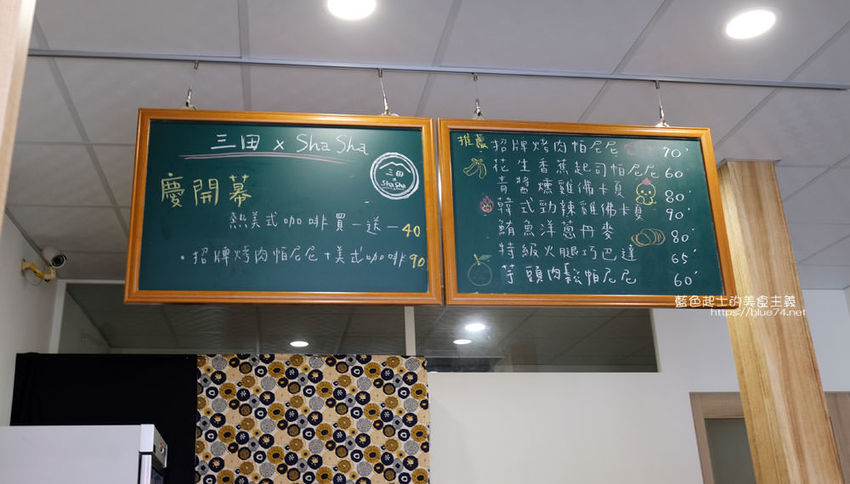 三田 x ShaSha
三田
x
ShaSha
慶開幕
熱美式咖啡買一送一 40
·招牌烤肉帕尼尼+美式咖啡 90
推薦 招牌烤肉帕尼尼 70
花生香蕉起司帕尼尼 60
青醬燻雞佛卡夏 80
韓式勁辣雞佛卡夏 90
鮪魚洋蔥丹麥 80
特級火腿巧巴達 65
芋頭肉鬆帕尼尼 60
藍色起士的美食主義
https://blue74.net